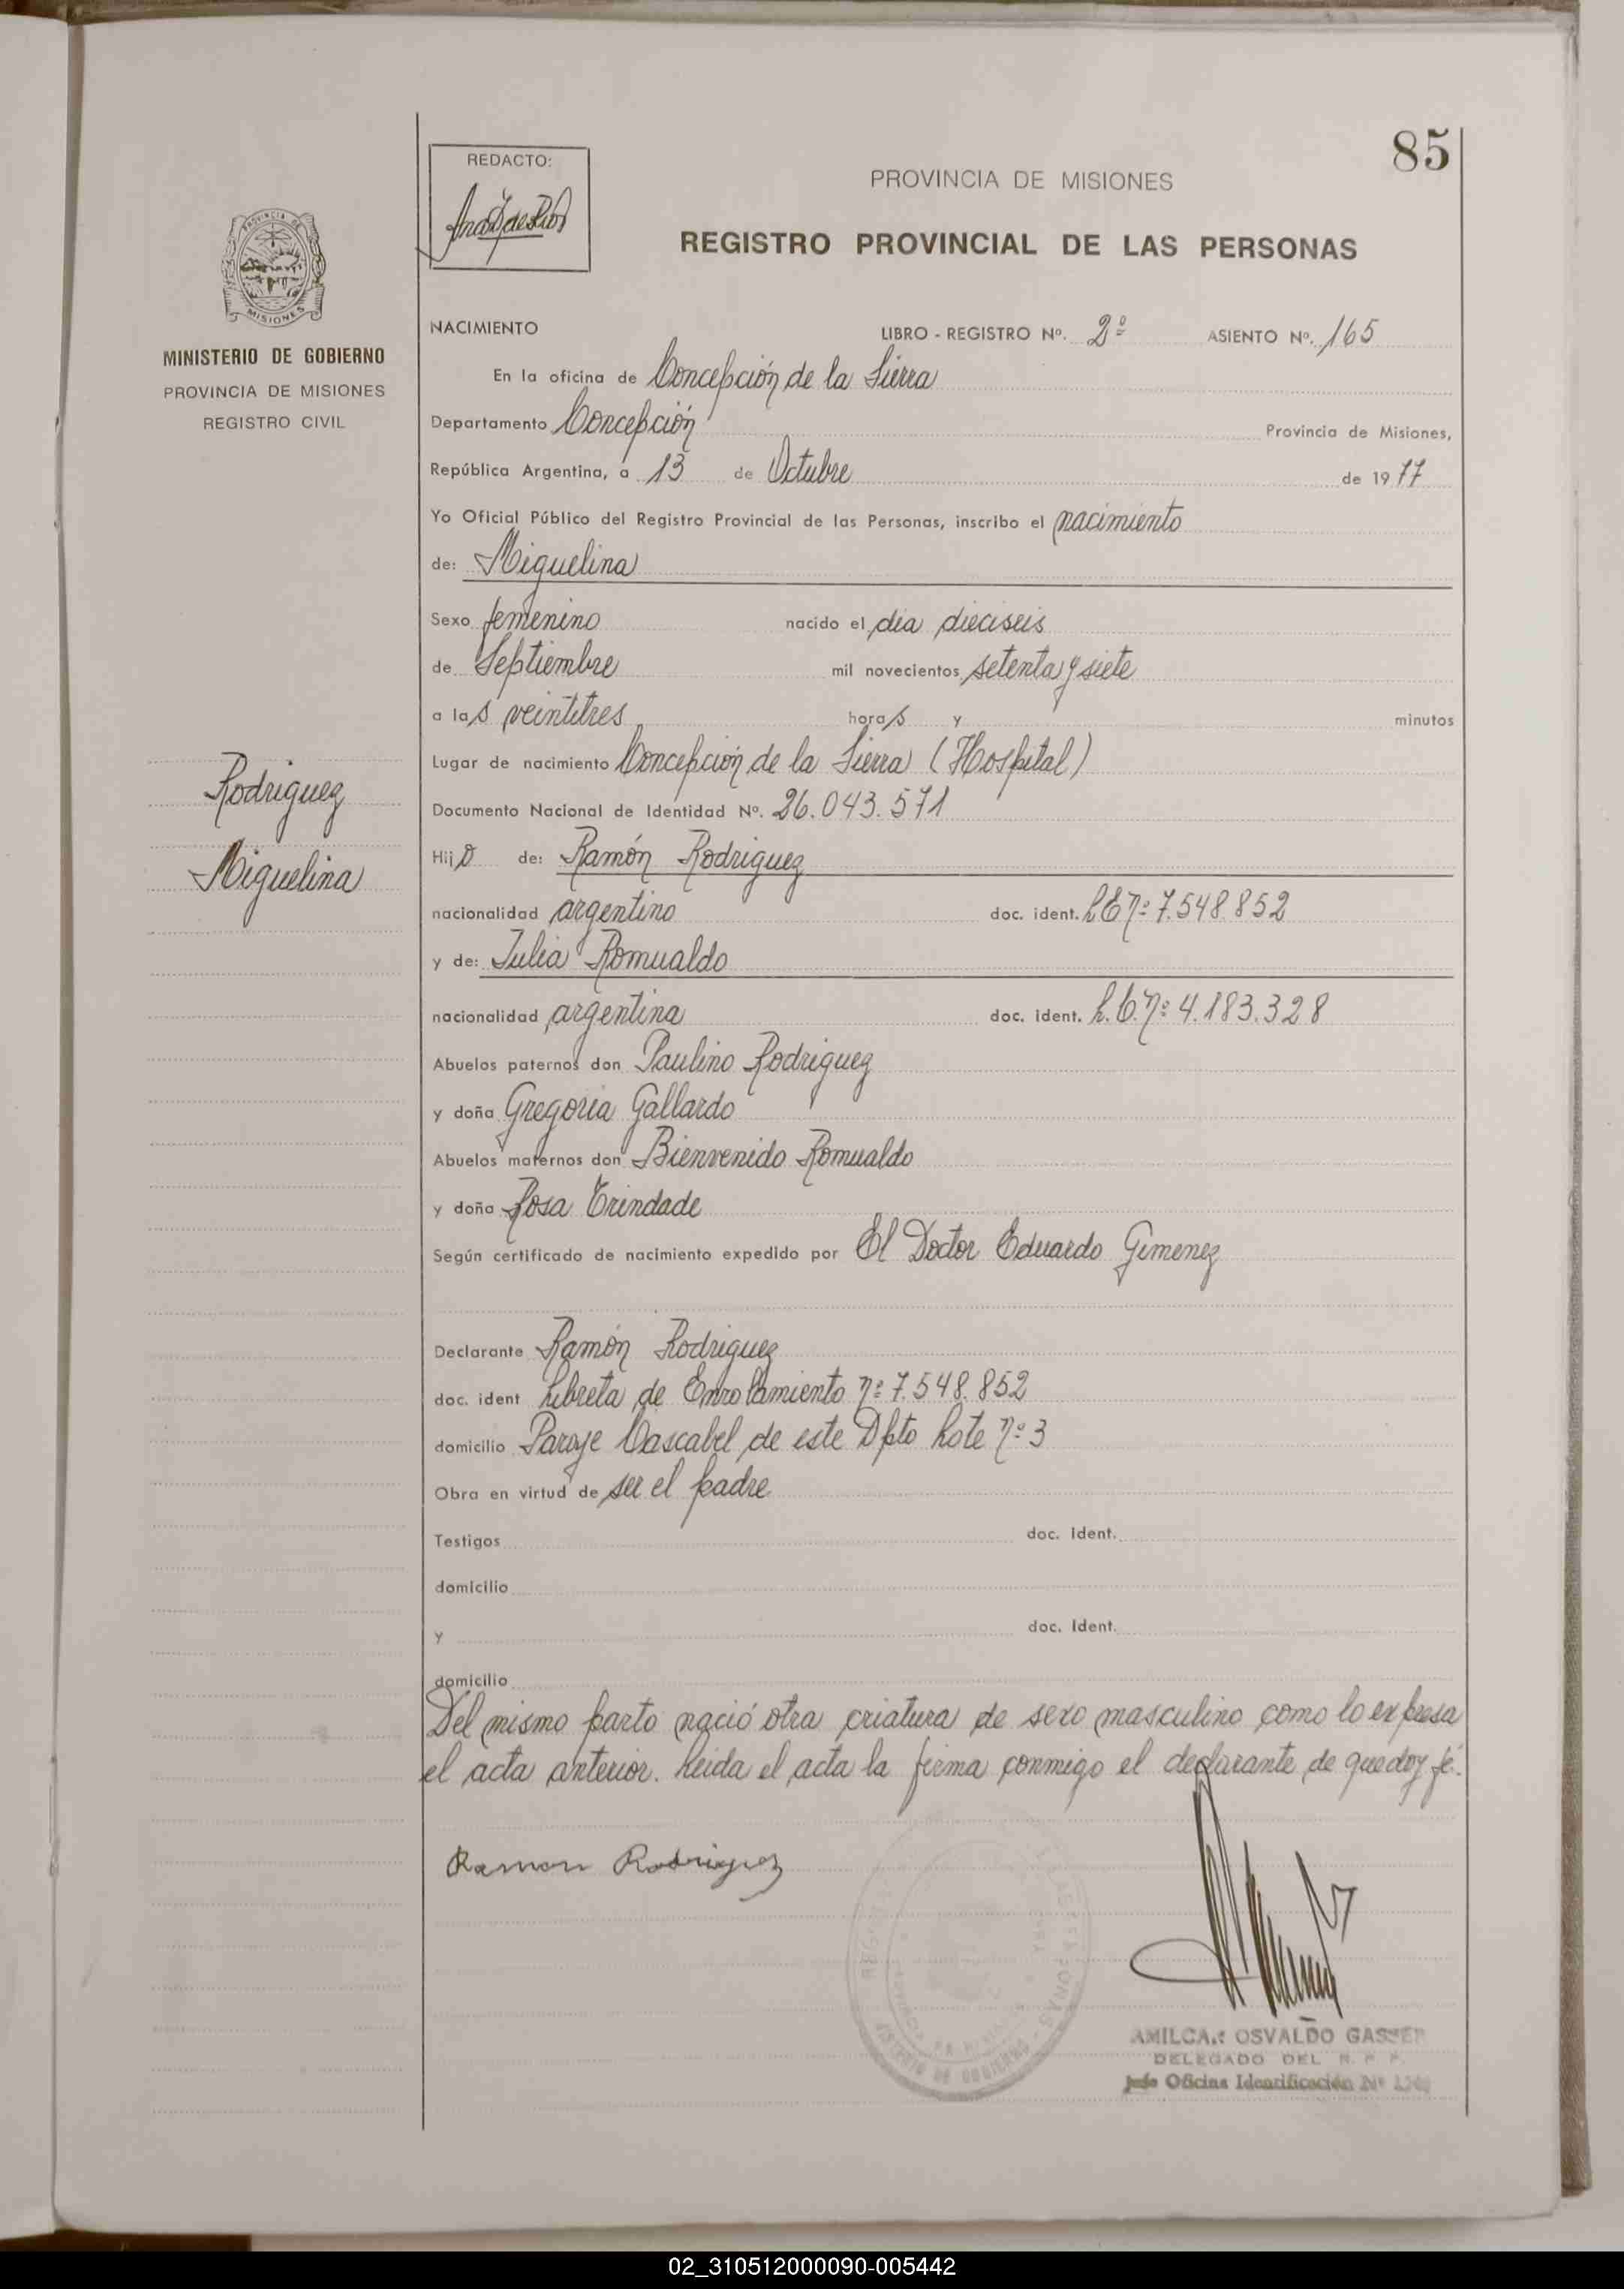 85
REDACTO:
PROVINCIA DE MISIONES
REGISTRO PROVINCIAL DE LAS PERSONAS
PROVINCIA DE
MISIONES
MINISTERIO DE GOBIERNO
PROVINCIA DE MISIONES
REGISTRO CIVIL
NACIMIENTO LIBRO - REGISTRO Nº. 2º ASIENTO Nº. 165
En la oficina de Concepción de la Sierra
Departamento Concepción Provincia de Misiones,
República Argentina, a 13 de Octubre de 1977
Yo Oficial Público del Registro Provincial de las Personas, inscribo el nacimiento
de: Miguelina
Sexo femenino nacido el dia dieciseis
de Septiembre mil novecientos setenta y siete
a las veintitres horas y minutos
Lugar de nacimiento Concepción de la Sierra (Hospital)
Documento Nacional de Identidad Nº. 26.043.571
Rodriguez
Miguelina
Hijo de: Ramón Rodriguez
nacionalidad argentino doc. ident. L E nº 7.548.852
y de: Julia Romualdo
nacionalidad argentina doc. ident. L.C. nº 4.183.328
Abuelos paternos don Paulino Rodriguez
y doña Gregoria Gallardo
Abuelos maternos don Bienvenido Romualdo
y doña Rosa Trindade
Según certificado de nacimiento expedido por El Doctor Eduardo Gimenez
Declarante Ramón Rodriguez
doc. ident Libreta de Enrolamiento nº 7.548.852
domicilio Paraje Cascabel de este Dpto Lote nº 3
Obra en virtud de ser el padre
Testigos doc. Ident.
domicilio
y doc. Ident.
domicilio
Del mismo parto nació otra criatura de sexo masculino como lo expresa
el acta anterior. Leida el acta la firma conmigo el declarante de que doy fé.
Ramon Rodriguez
AMILCAR OSVALDO GASSER
DELEGADO DEL R. P. P.
Jefe Oficina Identificación Nº
02_310512000090-005442